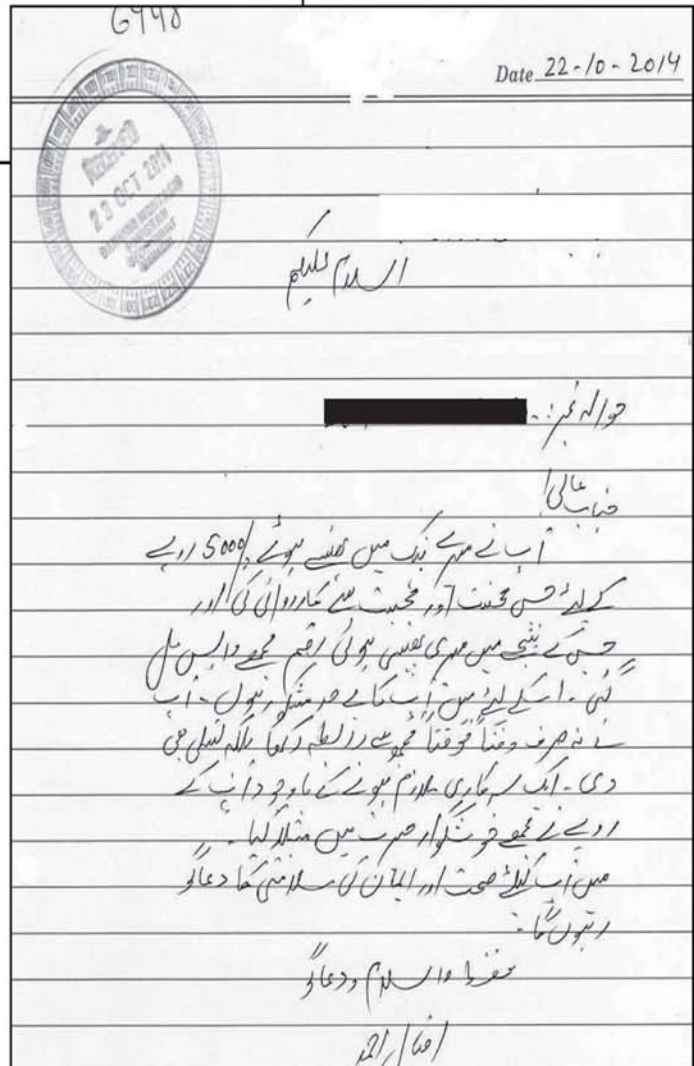 6440
Date 22-10-2014
RECEIVED
23 OCT 2014
BANKING MOHTASIB
PAKISTAN
السلام علیکم
حوالہ نمبر:
جناب عالی!
آپ نے میرے بنک میں پھنسے ہوئے 5000/ روپے
کے لیئے جس محنت اور محبت سے کارروائی کی اور
جس کے نتیجے میں میری پھنسی ہوئی رقم مجھے واپس مل
گئی۔ اسکے لیئے میں آپ کا بے حد مشکور ہوں۔ آپ
نے نہ صرف وقتاً فوقتاً مجھ سے رابطہ رکھا بلکہ تسلی بھی
دی۔ ایک سرکاری ملازم ہونے کے باوجود آپ کے
رویے نے مجھے خوشگوار حیرت میں مبتلا کیا۔
میں آپ کیلئے صحت اور ایمان کی سلامتی کا دعاگو
رہوں گا۔
فقط والسلام و دعاگو